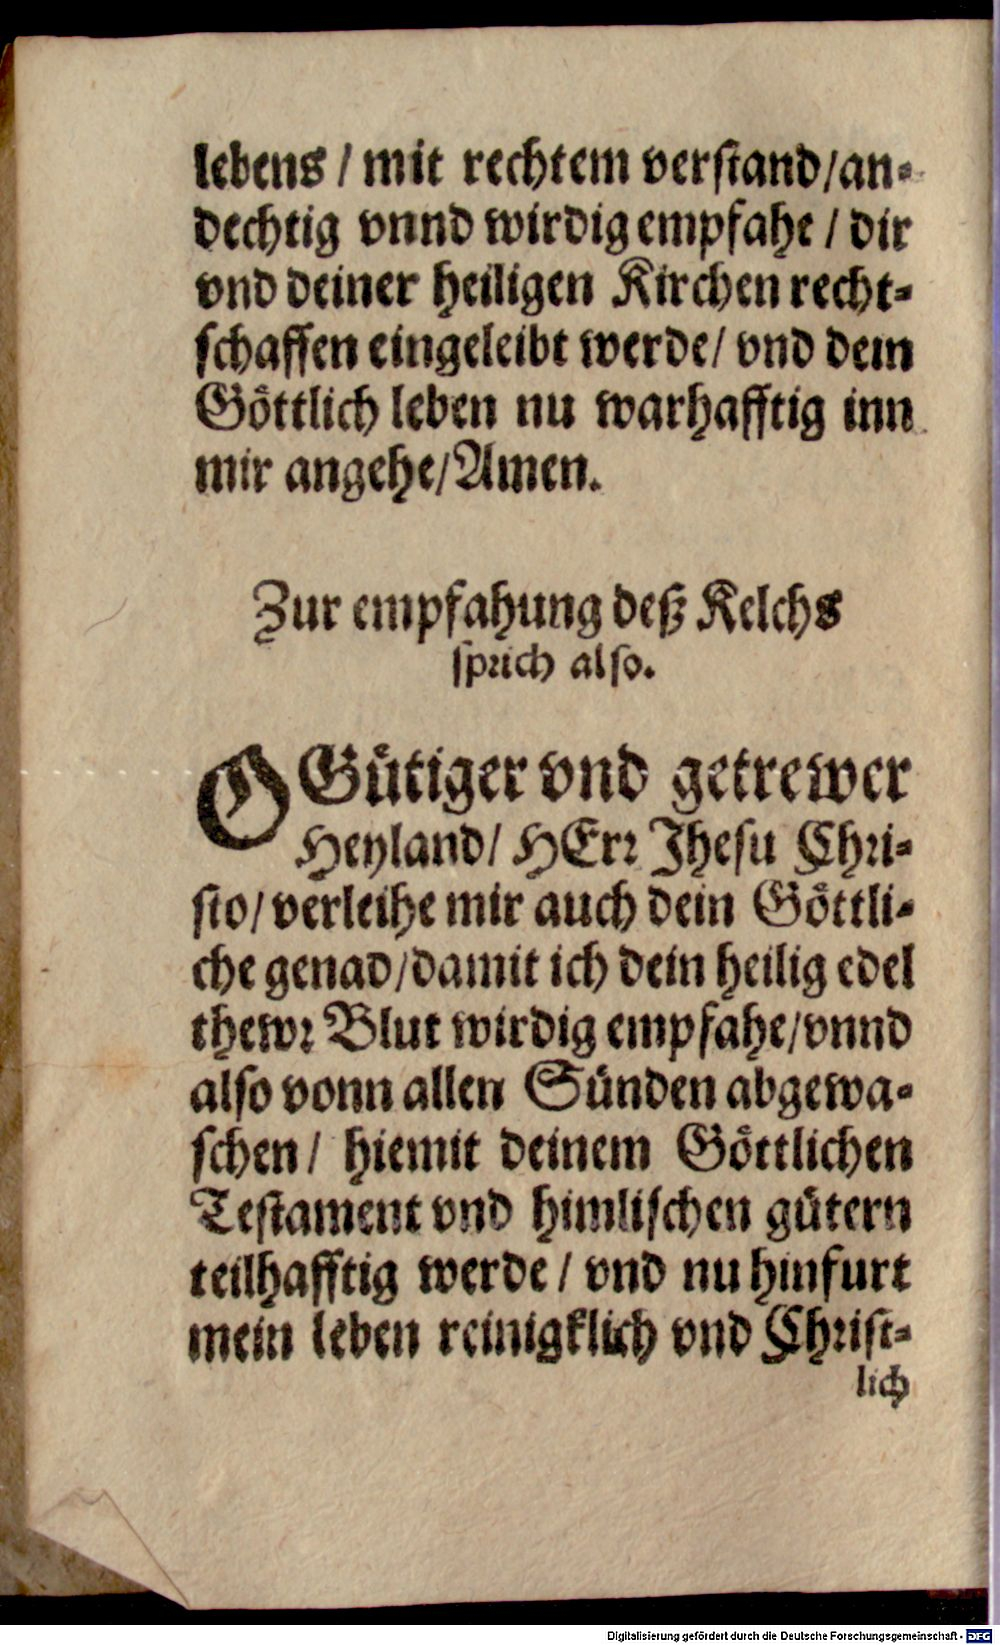 lebens / mit rechtem verstand/an-
dechtig vnnd wirdig empfahe / dir
vnd deiner heiligen Kirchen recht-
schaffen eingeleibt werde/ vnd dein
Göttlich leben nu warhafftig inn
mir angehe/Amen.
Zur empfahung deß Kelchs
sprich also.
O Gütiger vnd getrewer
Heyland/ HErr Jhesu Chri-
sto/ verleihe mir auch dein Göttli-
che genad/damit ich dein heilig edel
thewr Blut wirdig empfahe/vnnd
also vonn allen Sünden abgewa-
schen/ hiemit deinem Göttlichen
Testament vnd himlischen gütern
teilhafftig werde / vnd nu hinfurt
mein leben reinigklich vnd Christ-
lich
Digitalisierung gefördert durch die Deutsche Forschungsgemeinschaft - DFG